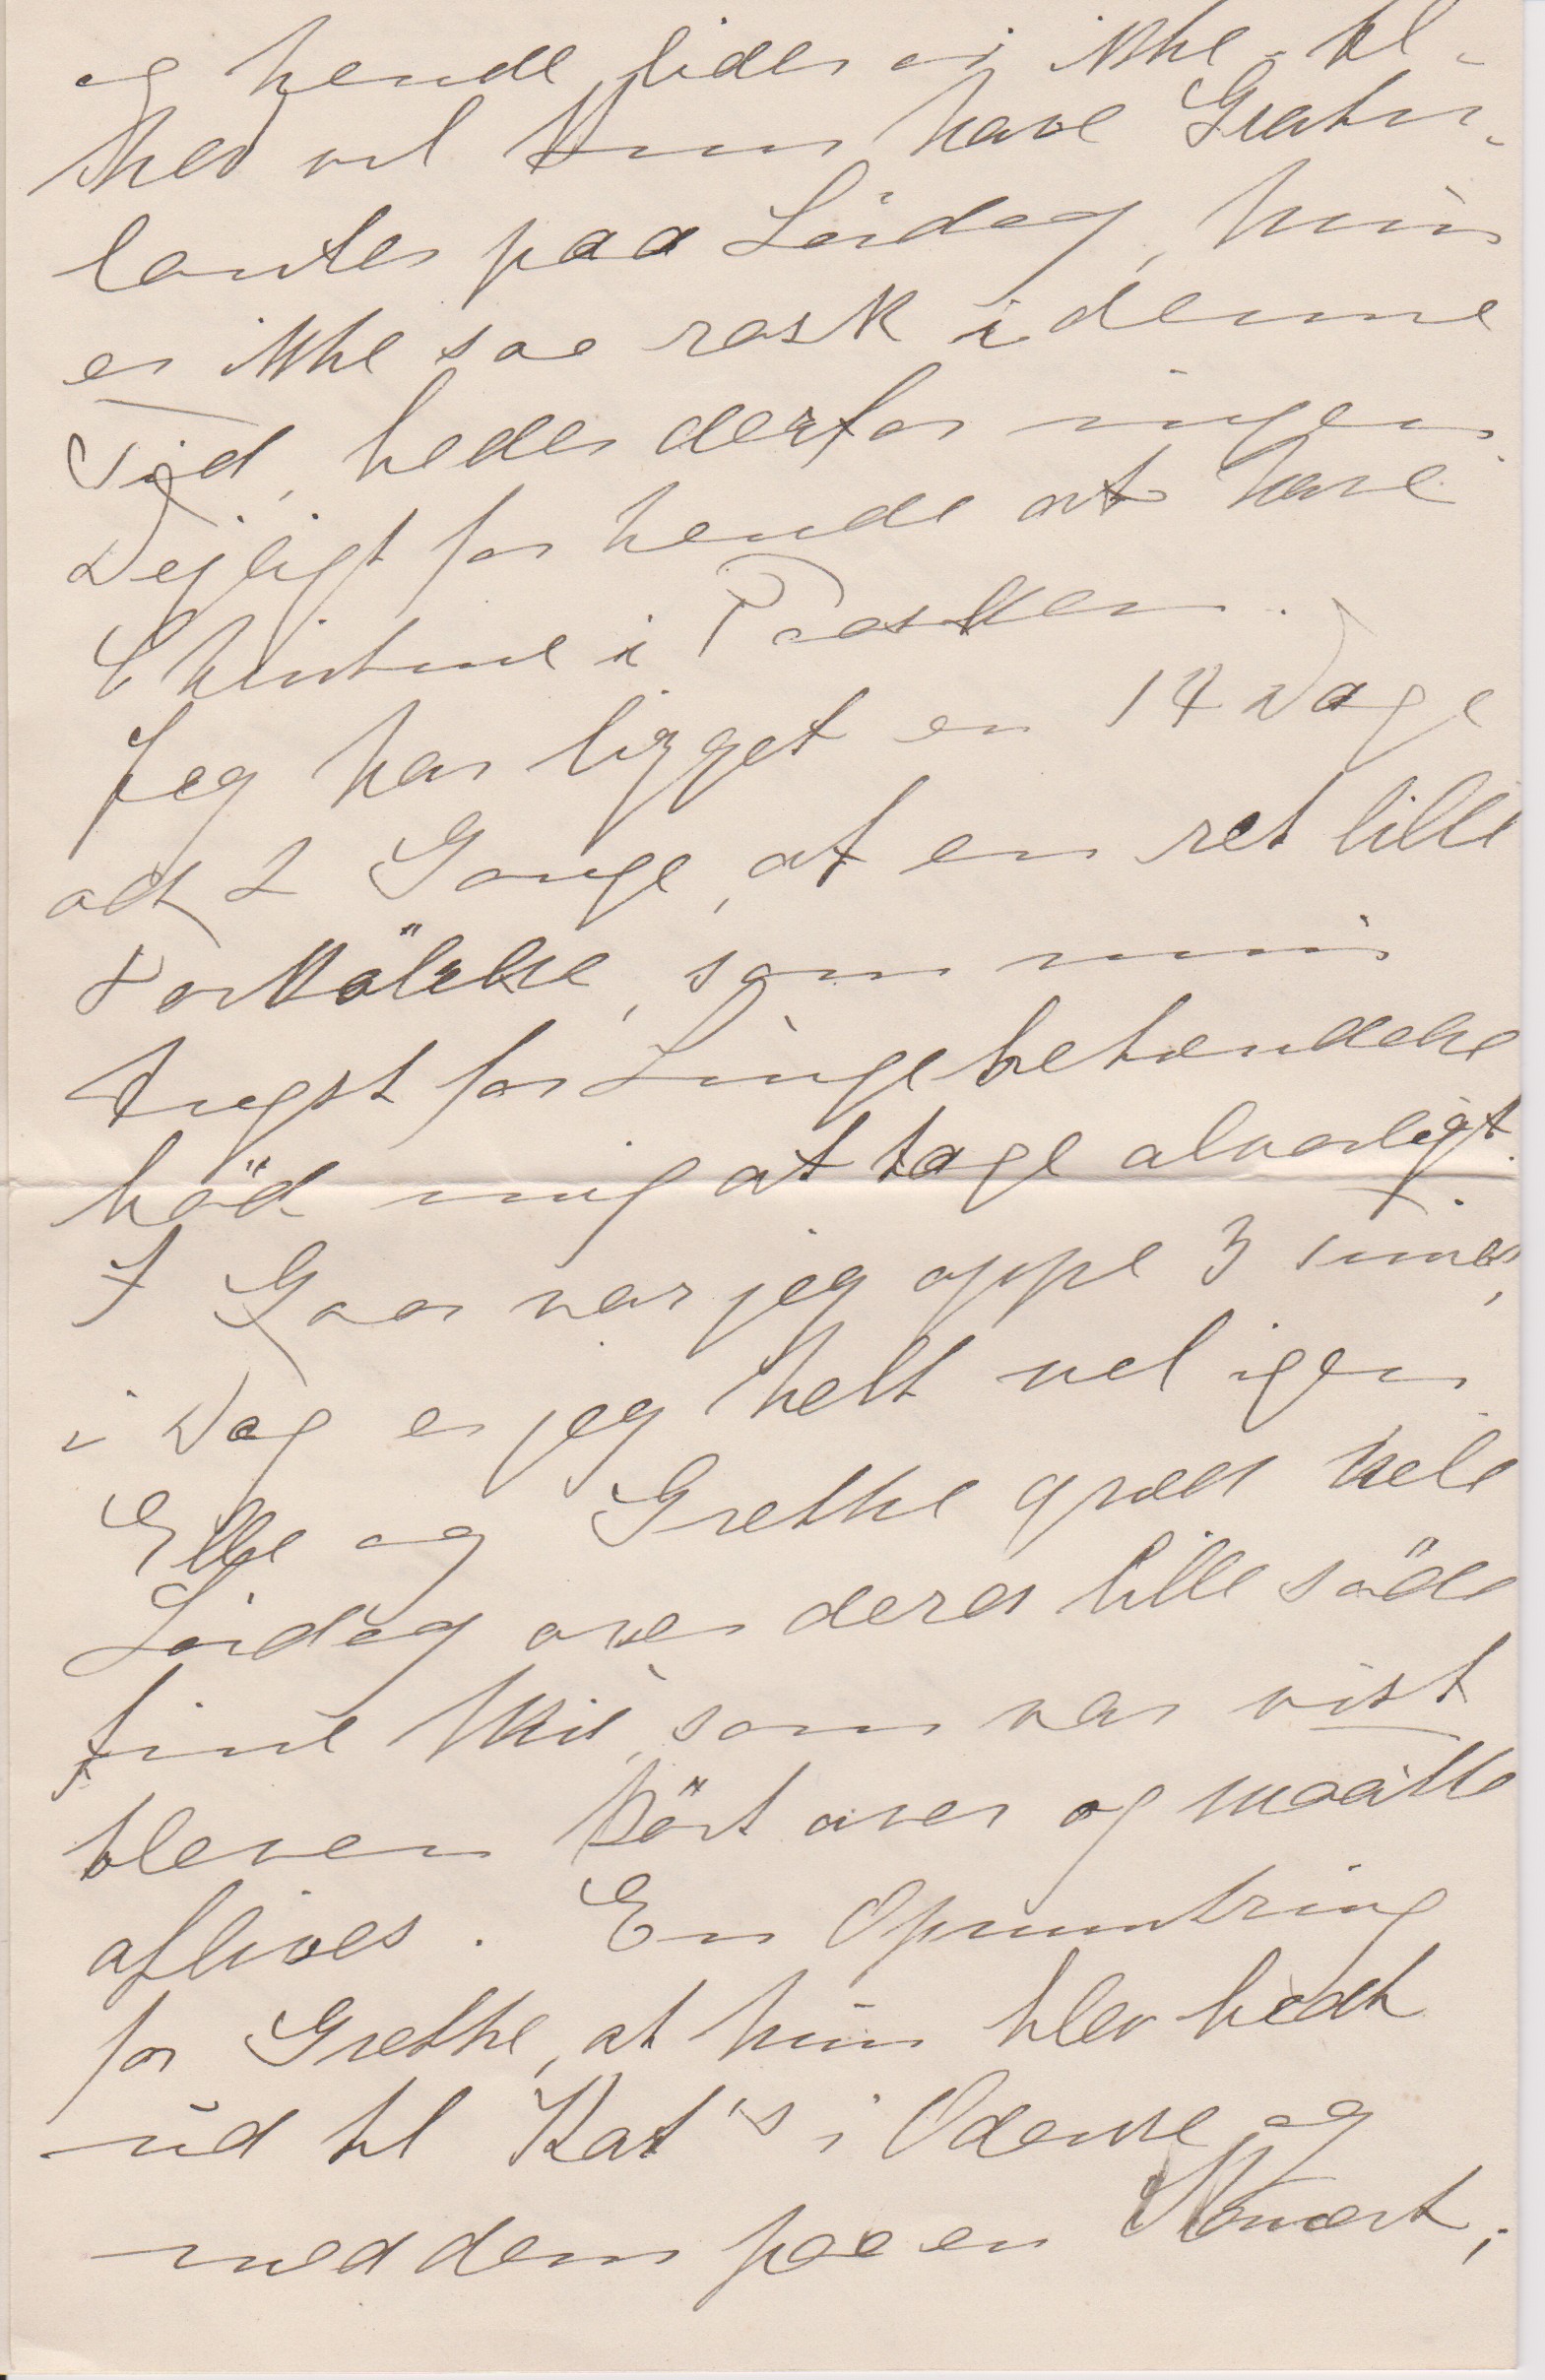 og hende lider vi ikke. Kl-
hed vil kun have Gratu-
lanter paa Lördag, hun
er ikke saa rask i denne
Tid, beder derfor ingen.
Dejligt for hende at have
Christine i Parken.
Jeg har ligget en 14 Dage
ad 2 Gange, af en ret lille
Forkölelse, som min
Angst for Lungebetændelse
böd mig at tage alvorligt.
I Gaar var jeg oppe 3 Timer,
i Dag er jeg helt vel igen.
Elle og Grethe græd hele
Lördag over deres lille söde
fine Mis, som var vist
bleven kört over og maatte
aflives. En Opmuntring
for Grethe, at hun blev bedt
ud til Kat's i Odense og
med dem paa en Koncert;